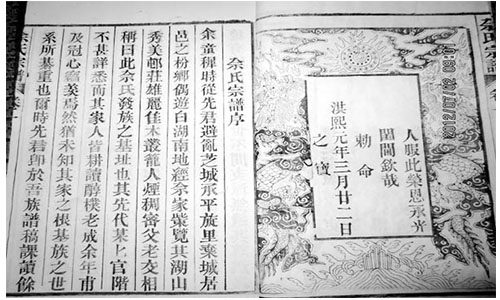 佘氏宗譜
人
此榮恩永光
閭閻欽哉
洪熙元年三月廿二日
勅命
之寶
佘氏宗譜序
余童穉時從先君避亂芝城永平旅里粟城居
邑之枌鄉偶遊白湖南地經佘家業覽其湖山
秀美邨莊雄麗佳木叢籠人煙稠密父老交相
稱曰此佘氏發族之基址也其先代墓上官階
不甚詳悉而其家人皆耕讀醇樸老成余年甫
及冠心竊羡焉然猶未知其家之根基族之世
系所基重也爾時先君即於吾族譜稿課讀餘
佘氏宗譜